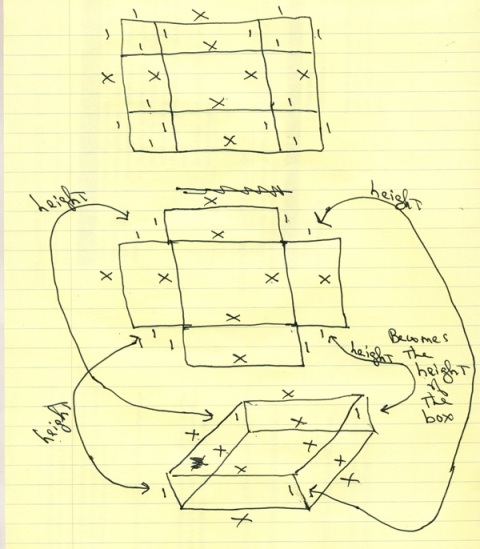 1 X 1
1 1 1 1
1 X 1
X X X X
1 X 1
1 1 1 1
1 X 1
height X height
1 1
1 X 1
X X X X
X
1 1 1 1
1 X 1
height
Becomes
The
height
of
The
box
height
X
1 X 1
X X X
X X X
1 1
X